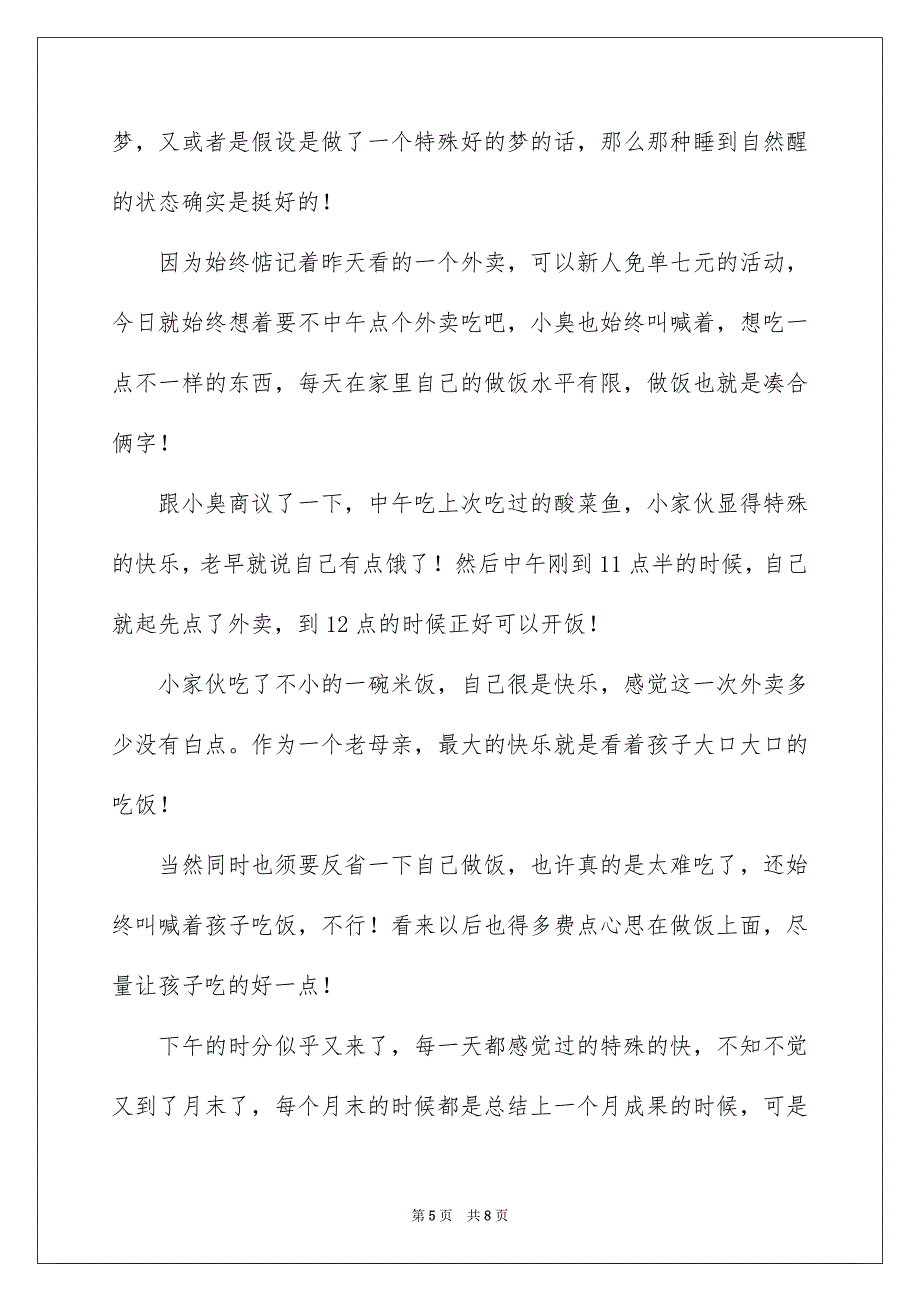 梦，又或者是假设是做了一个特殊好的梦的话，那么那种睡到自然醒
的状态确实是挺好的！
因为始终惦记着昨天看的一个外卖，可以新人免单七元的活动，
今日就始终想着要不中午点个外卖吃吧，小臭也始终叫喊着，想吃一
点不一样的东西，每天在家里自己的做饭水平有限，做饭也就是凑合
俩字！
跟小臭商议了一下，中午吃上次吃过的酸菜鱼，小家伙显得特殊
的快乐，老早就说自己有点饿了！然后中午刚到 11 点半的时候，自己
就起先点了外卖，到 12 点的时候正好可以开饭！
小家伙吃了不小的一碗米饭，自己很是快乐，感觉这一次外卖多
少没有白点。作为一个老母亲，最大的快乐就是看着孩子大口大口的
吃饭！
当然同时也须要反省一下自己做饭，也许真的是太难吃了，还始
终叫喊着孩子吃饭，不行！看来以后也得多费点心思在做饭上面，尽
量让孩子吃的好一点！
下午的时分似乎又来了，每一天都感觉过的特殊的快，不知不觉
又到了月末了，每个月末的时候都是总结上一个月成果的时候，可是
第 5 页 共 8 页